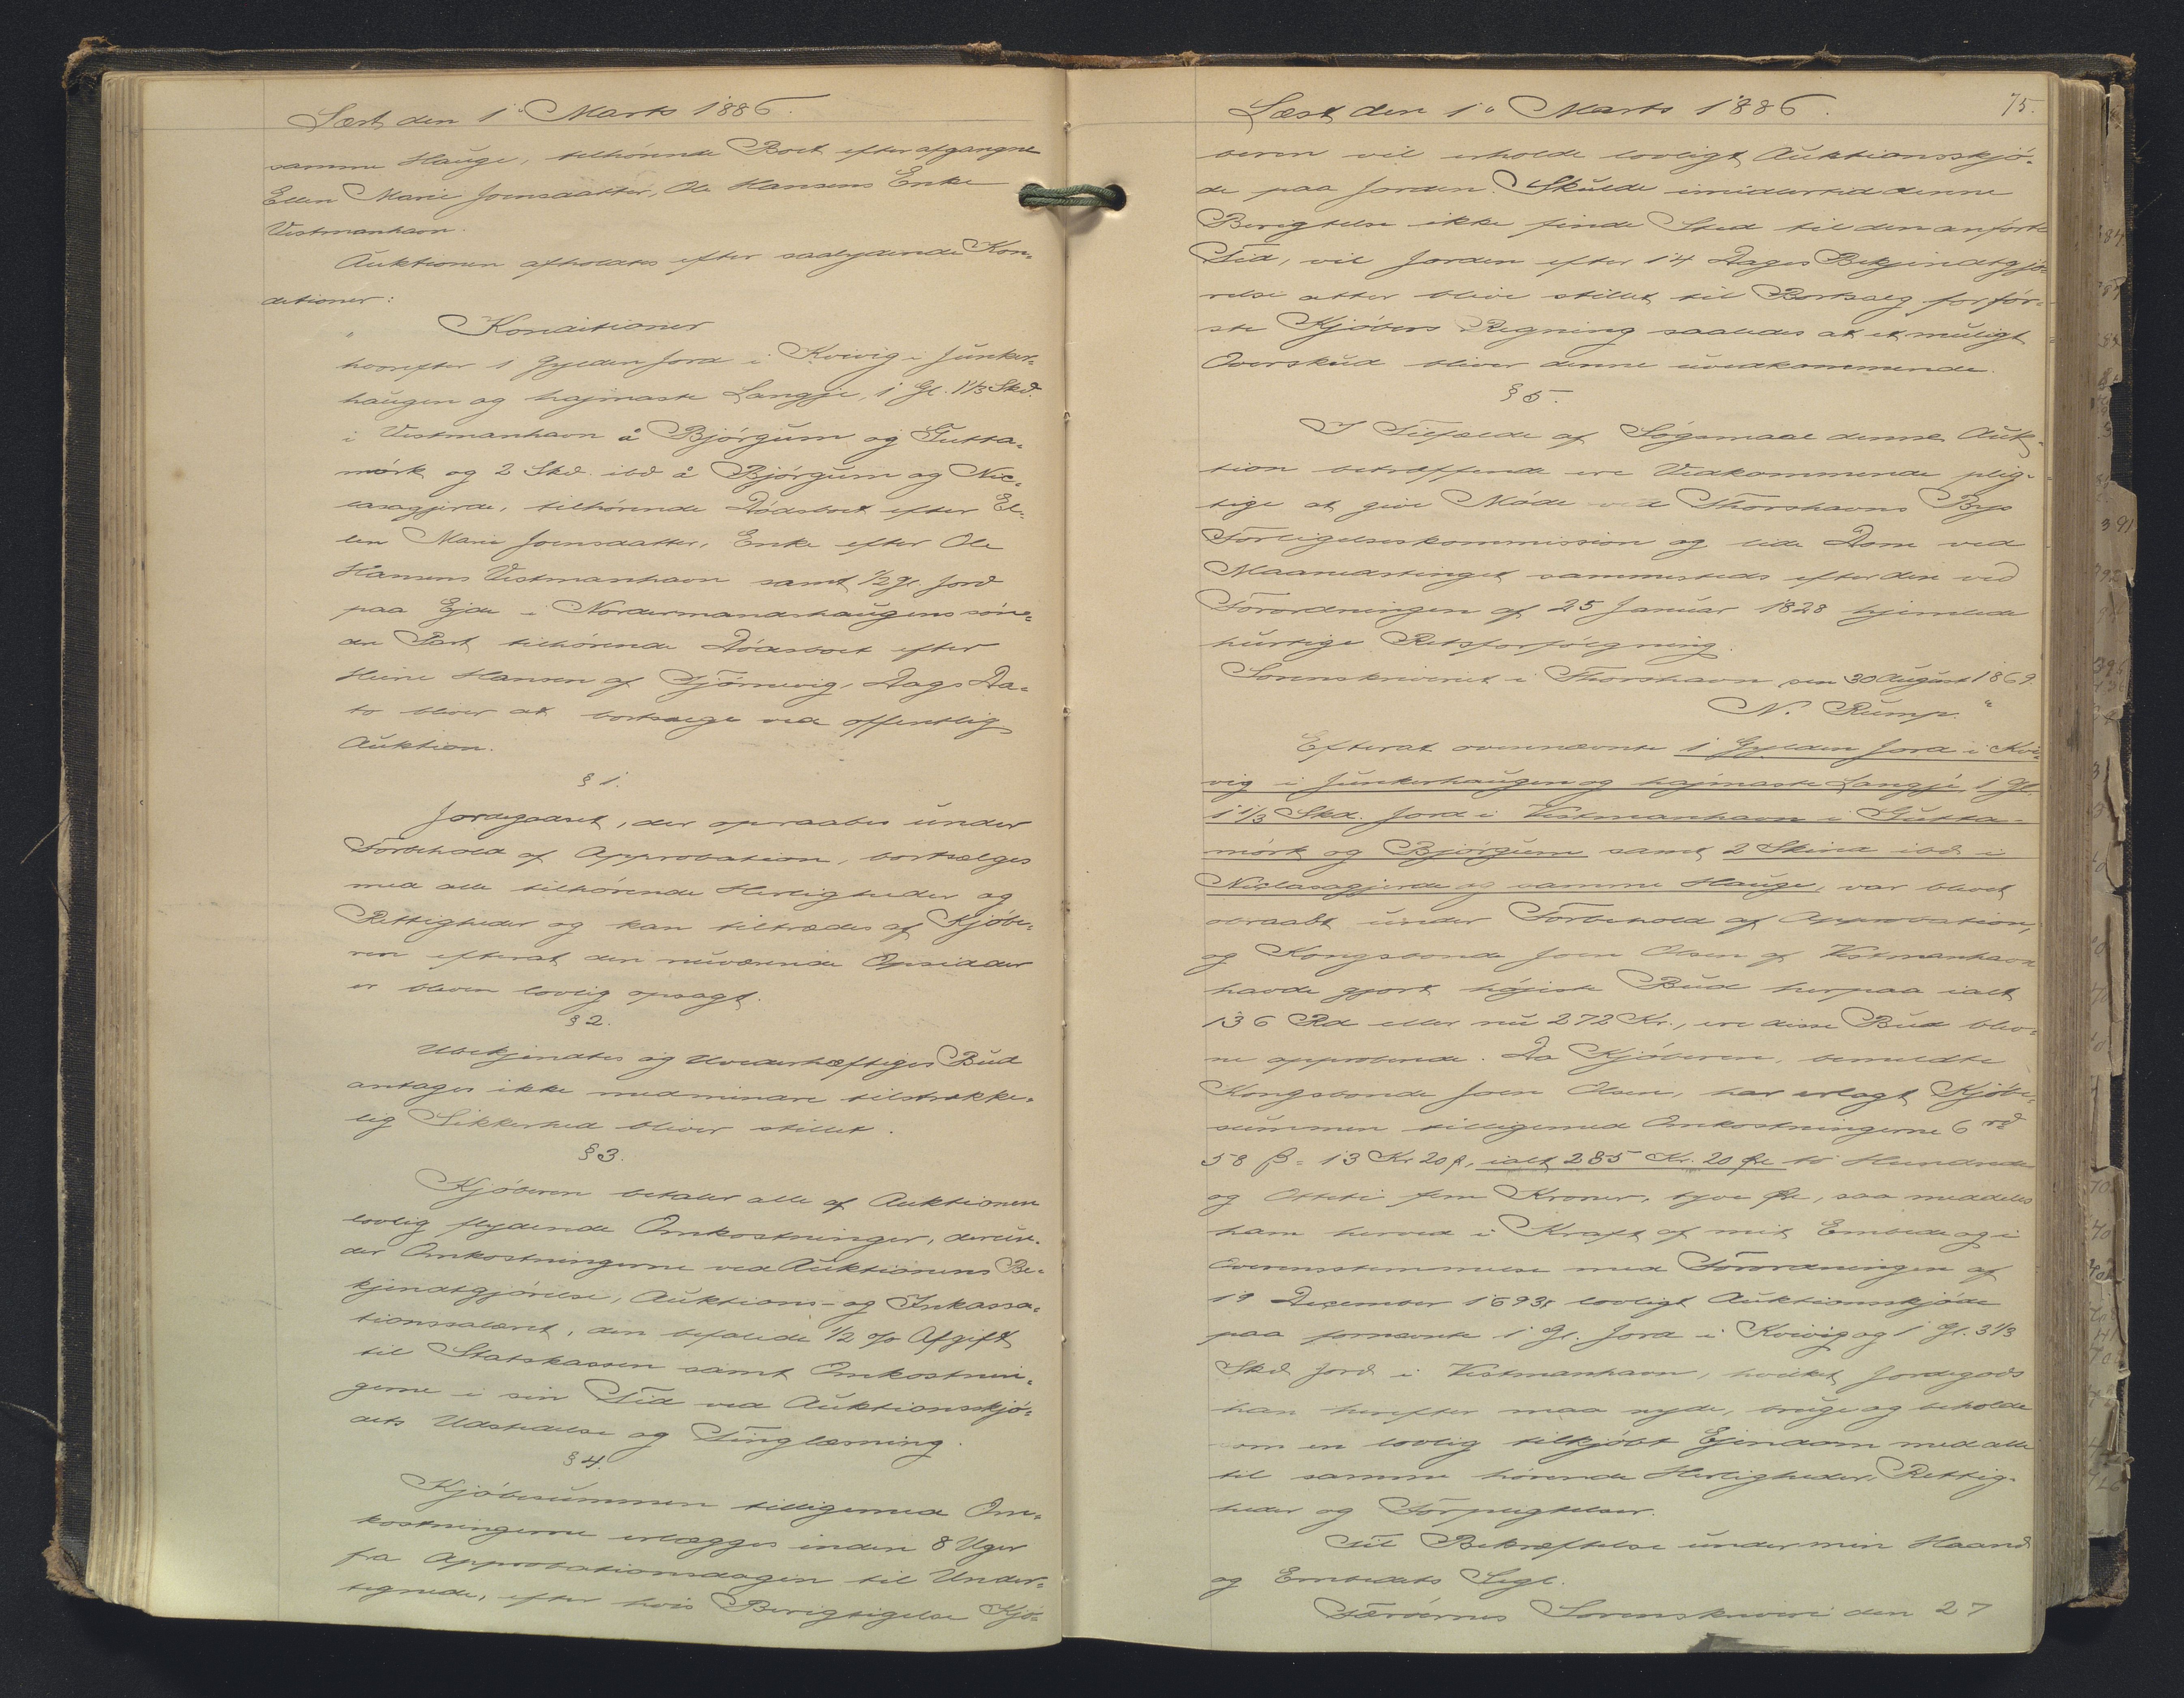 Læst den 1ᵉ Marts 1886.
samme Hauge, tilhörende Boet efter afgangne
Ellen Marie Joensdatter, Ole Hansens Enke
Vestmanhavn.
Auktionen afholdtes efter saalydende Kon-
ditioner:
" Konditioner
hvorefter 1 Gylden Jord i Kvivig i Junker-
haugen og højmaste Langgje, 1 Gl. 1 1/3 Skd.
i Vestmanhavn å Bjørgum og Gutta-
mörk og 2 Skd. ibd å Bjørgum og Nic-
lasagjerde, tilhörende Dödsboet efter El-
len Marie Joensdatter, Enke efter Ole
Hansens Vestmanhavn samt 1/2 Gl. Jord
paa Ejde i Nordermandshaugens sön-
dre Part tilhörende Dödsboet efter
Heine Hansen af Tjörnevig, Dags Da-
to bliver at bortsælge ved offentlig
Auktion.
§ 1.
Jordegodset, der opraabes under
Forbehold af Approbation, bortsælges
med alle tilhörende Herligheder og
Rettigheder og kan tiltrædes af Kjöbe-
ren efterat den nuværende Opsidder
er bleven lovlig opsagt.
§ 2.
Ubekjendtes og Uvederhæftiges Bud
antages ikke medmindre tilstrække-
lig Sikkerhed bliver stillet.
§ 3.
Kjöberen betaler alle af Auktionen
lovlig flydende Omkostninger, derun-
der Omkostningerne ved Auktionens Be-
kjendtgjörelse, Auktions- og Inkassa-
tionssalæret, den befalede 1/2 % Afgift
til Statskassen samt Omkostnin-
gerne i sin Tid ved Auktionsskjö-
dets Udstedelse og Tinglæsning.
§ 4.
Kjöbesummen tilligemed Om-
kostningerne erlægges inden 8 Uger
fra Approbationsdagen til Under-
tegnede, efter hvis Berigtigelse Kjö-
Læst den 1ᵉ Marts 1886.
75.
beren vil erholde lovligt Auktionsskjö-
de paa Jorden. Skulde imidlertid denne
Berigtelse ikke finde Sted til den anförte
Tid, vil Jorden efter 14 Dages Bekjendtgjö-
relse atter blive stillet til Bortsalg for för-
ste Kjöbers Regning saaledes at et muligt
Overskud bliver denne uvedkommende.
§ 5.
I Tilfælde af Sögsmaal denne Auk-
tion beträffende ere Vedkommende plig-
tige at give Möde ved Thorshavns Bys
Forligelseskommission og lide Dom ved
Maanedstinget sammesteds efter den ved
Forordningen af 25 Januar 1828 hjemlede
hurtige Retsforfölgning.
Sorenskriveriet i Thorshavn, den 30 August 1869.
N. Rump. "
Efterat ovennævnte 1 Gylden Jord i Kvi-
vig i Junkerhaugen og højmaste Langgje, 1 Gl.
1 1/3 Skd. Jord i Vestmanhavn i Gutta-
mörk og Bjørgum samt 2 Skind ibd. i
Niclasagjerde og samme Hauge, var blevet
opraabt under Forbehold af Approbation,
og Kongsbonde Joen Olsen af Vestmanhavn
havde gjort höjeste Bud herpaa ialt
136 Rd eller nu 272 Kr., ere disse Bud blev-
ne approberede. Da Kjöberen, bemeldte
Kongsbonde Joen Olsen, har erlagt Kjöbe-
summen tilligemed Omkostningerne 6 rd
58 ß = 13 Kr 20 ø, ialt 285 Kr. 20 Øre to Hundrede
og Otteti fem Kroner, tyve Øre, saa meddeles
ham herved i Kraft af mit Embede og i
Overensstemmelse med Forordningen af
19 December 1693, lovligt Auktionsskjöde
paa fornævnte 1 Gl. Jord i Kvivig og 1 Gl. 3 1/3
Skd Jord i Vestmanhavn, hvilket Jordegods
han herefter maa nyde, bruge og beholde
som en lovlig tilkjöbt Ejendom med alle
til samme hörende Herligheder, Rettig-
heder og Forpligtelser.
Til Bekræftelse under min Haand
og Embedets Segl.
Færöernes Sorenskriveri den 27